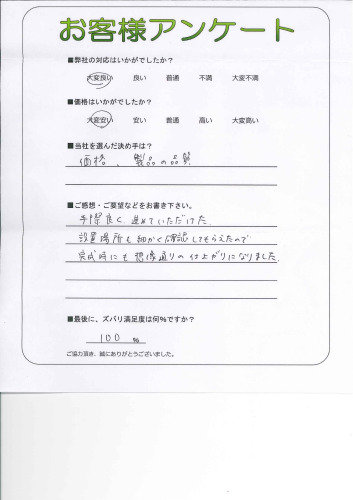 お客様アンケート
■弊社の対応はいかがでしたか?
大変良い 良い 普通 不満 大変不満
■価格はいかがでしたか?
大変安い 安い 普通 高い 大変高い
■当社を選んだ決め手は?
価格、製品の品質
■ご感想・ご要望などをお書き下さい。
手際良く、進めていただけた。
設置場所も細かく確認してもらえたので
完成時にも想像通りの仕上がりになりました。
■最後に、ズバリ満足度は何%ですか?
100 %
ご協力頂き、誠にありがとうございました。